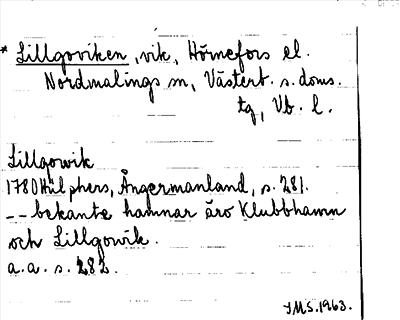 * Lillgoviken, vik, Hörnefors el.
Nordmalings sn, Västerb. s. doms.
tg, Vb. l.
Lillgowik
1780 Hülphers, Ångermanland, s. 281.
-- bekante hamnar äro Klubbhamn
och Lillgowik.
a. a. s. 282.
IMS. 1963.